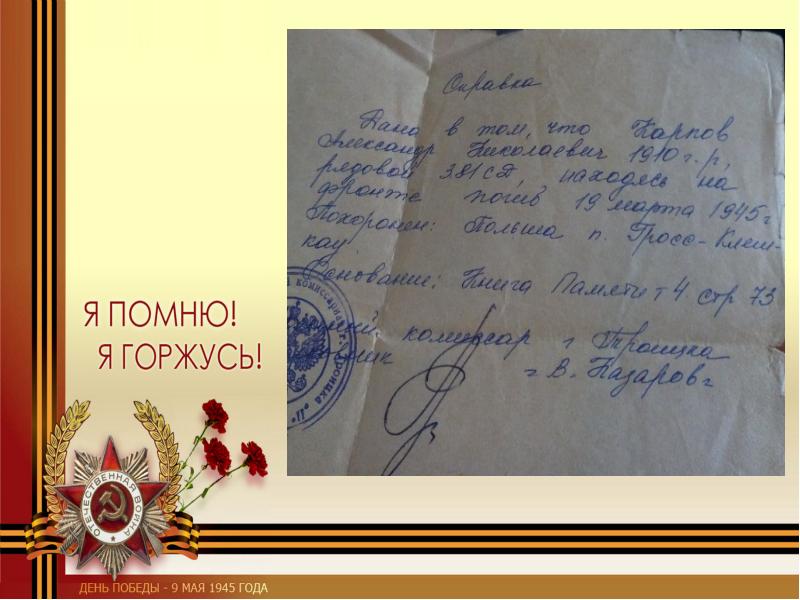 Справка
Дана в том, что Карпов
Александр Николаевич 1910 г.р,
рядовой 381 СД, находясь на
фронте погиб 19 марта 1945 г
Похоронен: Польша п. Гросс-Клеш-
кау.
Основание: Книга Памяти т 4. стр 73
комиссар г Троицка
В. Назаров
комиссариат г. Троицка
Я ПОМНЮ!
Я ГОРЖУСЬ!
ОТЕЧЕСТВЕННАЯ ВОЙНА
ДЕНЬ ПОБЕДЫ - 9 МАЯ 1945 ГОДА